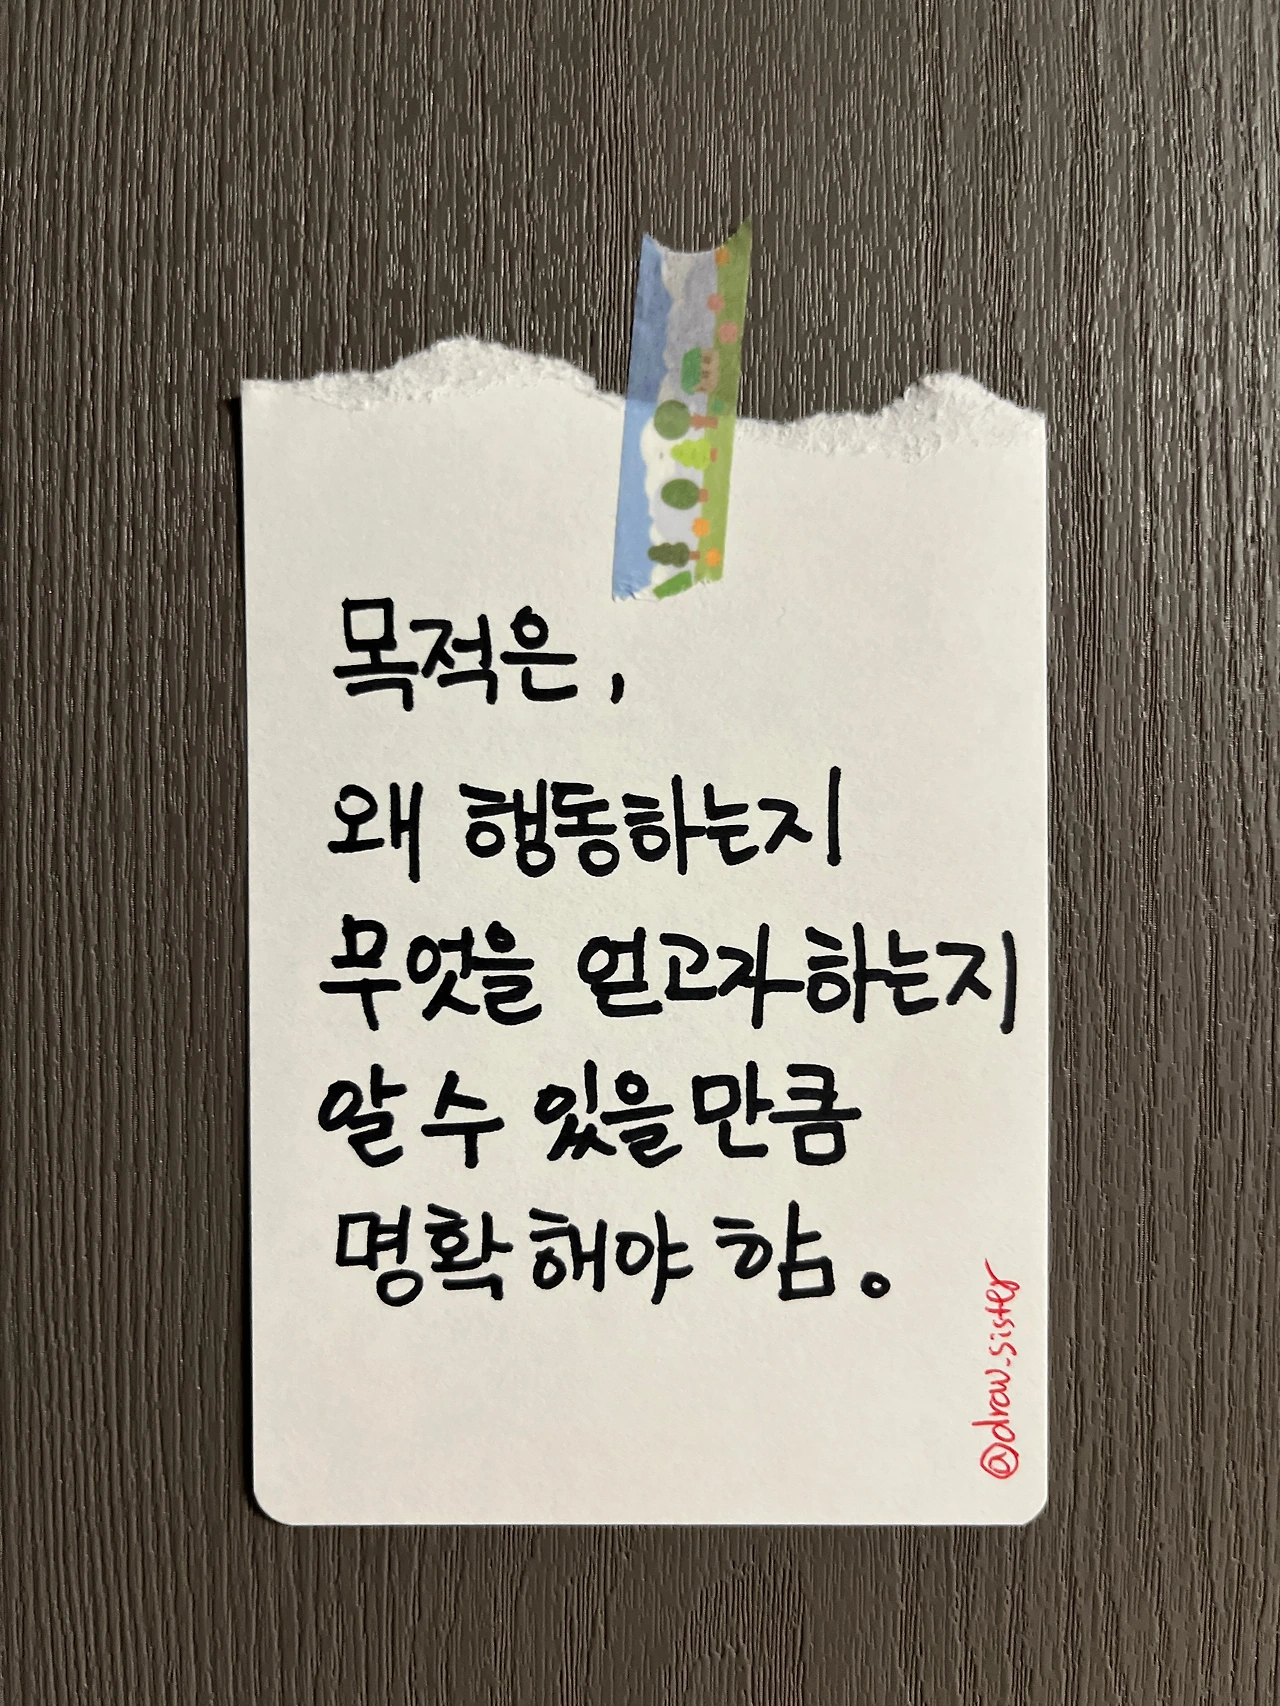 목적은,
왜 행동하는지
무엇을 얻고자 하는지
알 수 있을 만큼
명확해야 함.
@draw_sister